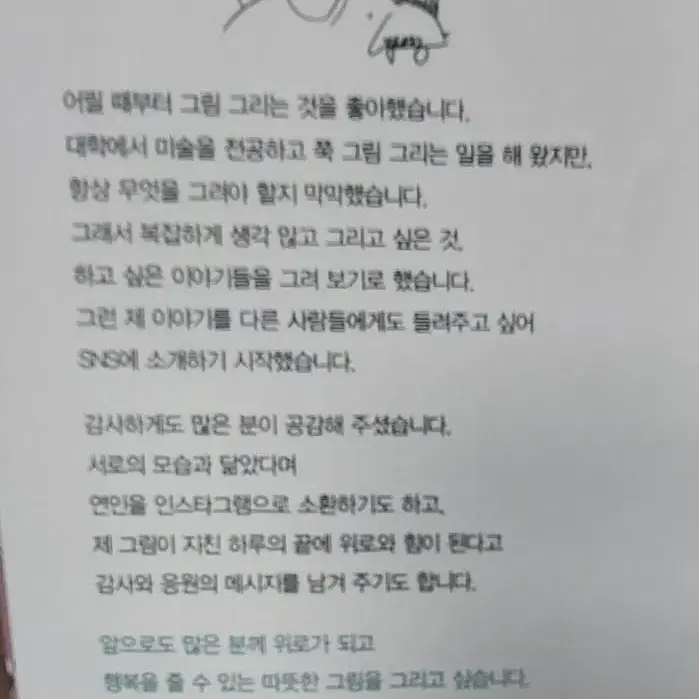 어릴 때부터 그림 그리는 것을 좋아했습니다.
대학에서 미술을 전공하고 쭉 그림 그리는 일을 해 왔지만,
항상 무엇을 그려야 할지 막막했습니다.
그래서 복잡하게 생각 않고 그리고 싶은 것,
하고 싶은 이야기들을 그려 보기로 했습니다.
그런 제 이야기를 다른 사람들에게도 들려주고 싶어
SNS에 소개하기 시작했습니다.
감사하게도 많은 분이 공감해 주셨습니다.
서로의 모습과 닮았다며
연인을 인스타그램으로 소환하기도 하고,
제 그림이 지친 하루의 끝에 위로와 힘이 된다고
감사와 응원의 메시지를 남겨 주기도 합니다.
앞으로도 많은 분께 위로가 되고
행복을 줄 수 있는 따뜻한 그림을 그리고 싶습니다.